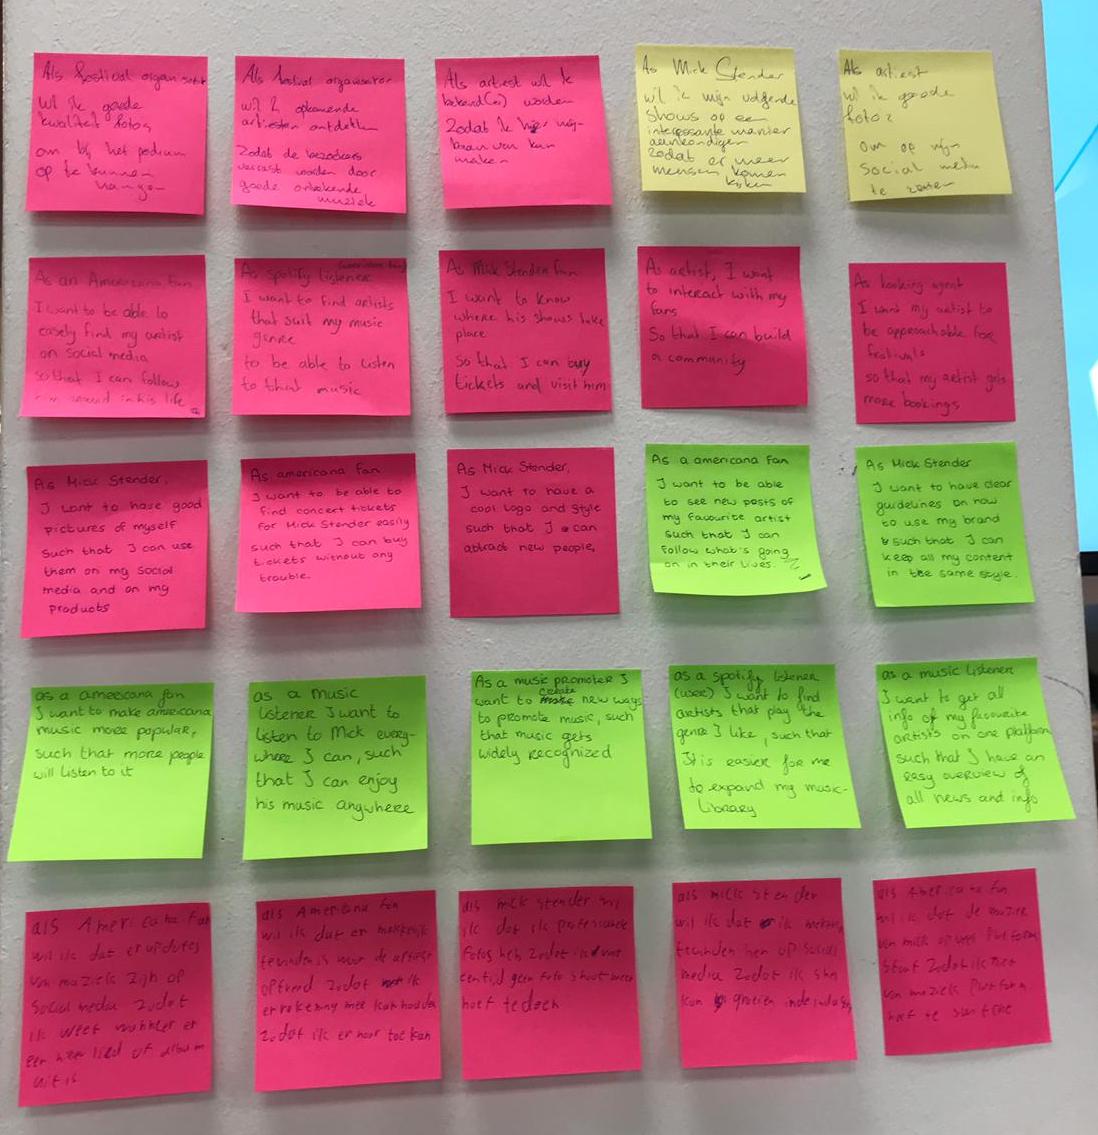 Als festival organisator
wil ik goede
kwaliteit fotos
om bij het podium
op te kunnen
hangen
Als festival organisator
wil ik opkomende
artiesten ontdekken
Zodat de bezoekers
verrast worden door
goede onbekende
muziek
Als artiest wil ik
bekend(er) worden
Zodat ik hier mijn
baan van kan
maken
As Mick Stender
wil ik mijn volgende
shows op een
interessante manier
aankondigen
zodat er meer
mensen komen
kijken
Als artiest
wil ik goede
foto's
om op mijn
social media
te zetten
As an Americana fan
I want to be able to
easely find my artist
on social media
so that I can follow
him around in his life
As Spotify Listener
I want to find artists
that suit my music
genre
to be able to listen
to that music
As Mick Stender fan
I want to know
where his shows take
place
so that I can buy
tickets and visit him
As artist, I want
to interact with my
fans
So that I can build
a community
As booking agent
I want my artist to
be approachable for
festivals
so that my artist gets
more bookings
As Mick Stender,
I want to have good
pictures of myself
such that I can use
them on my social
media and on my
products
As americana fan
I want to be able to
find concert tickets
for Mick Stender easily
such that I can buy
tickets without any
trouble.
As Mick Stender,
I want to have a
cool logo and style
such that I can
attract new people.
As a americana fan
I want to be able
to see new posts of
my favourite artist
such that I can
follow what's going
on in their lives.
As Mick Stender
I want to have clear
guidelines on how
to use my brand
such that I can
keep all my content
in the same style.
as a americana fan
I want to make americana
music more popular,
such that more people
will listen to it
as a music
listener I want to
listen to Mick every-
where I can, such
that I can enjoy
his music anywhere
As a music promoter I
want to create new ways
to promote music, such
that music gets
widely recognized
as a spotify listener
(user) I want to find
artists that play the
genre I like, such that
It is easier for me
to expand my music-
library
as a music listener
I want to get all
info of my favourite
artists on one platform
such that I have an
easy overview of
all news and info
als Americana fan
wil ik dat er updates
van muziek zijn op
social media zodat
ik weet wanneer er
een neer lied of album
uit is
als Americana fan
wil ik dat er makkelijk
te vinden is waar de artiest
optreed zodat ik
er rekening mee kan houden
zodat ik er naar toe kan
als mick stender wil
ik dat ik professionele
fotos heb zodat ik
geen foto shoot meer
hoef te doen
als mick stender
wil ik dat ik makkelijk
te vinden ben op social
media zodat ik snel
kan groeien in de industry
als Americana fan
wil ik dat de muziek
van mick op veel platforms
staat zodat ik niet
van muziek platform
hoef te switchen